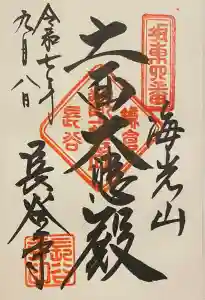 坂東四番
海光山
十一面大悲殿
鎌倉
長谷
長谷寺
令和七年
九月八日